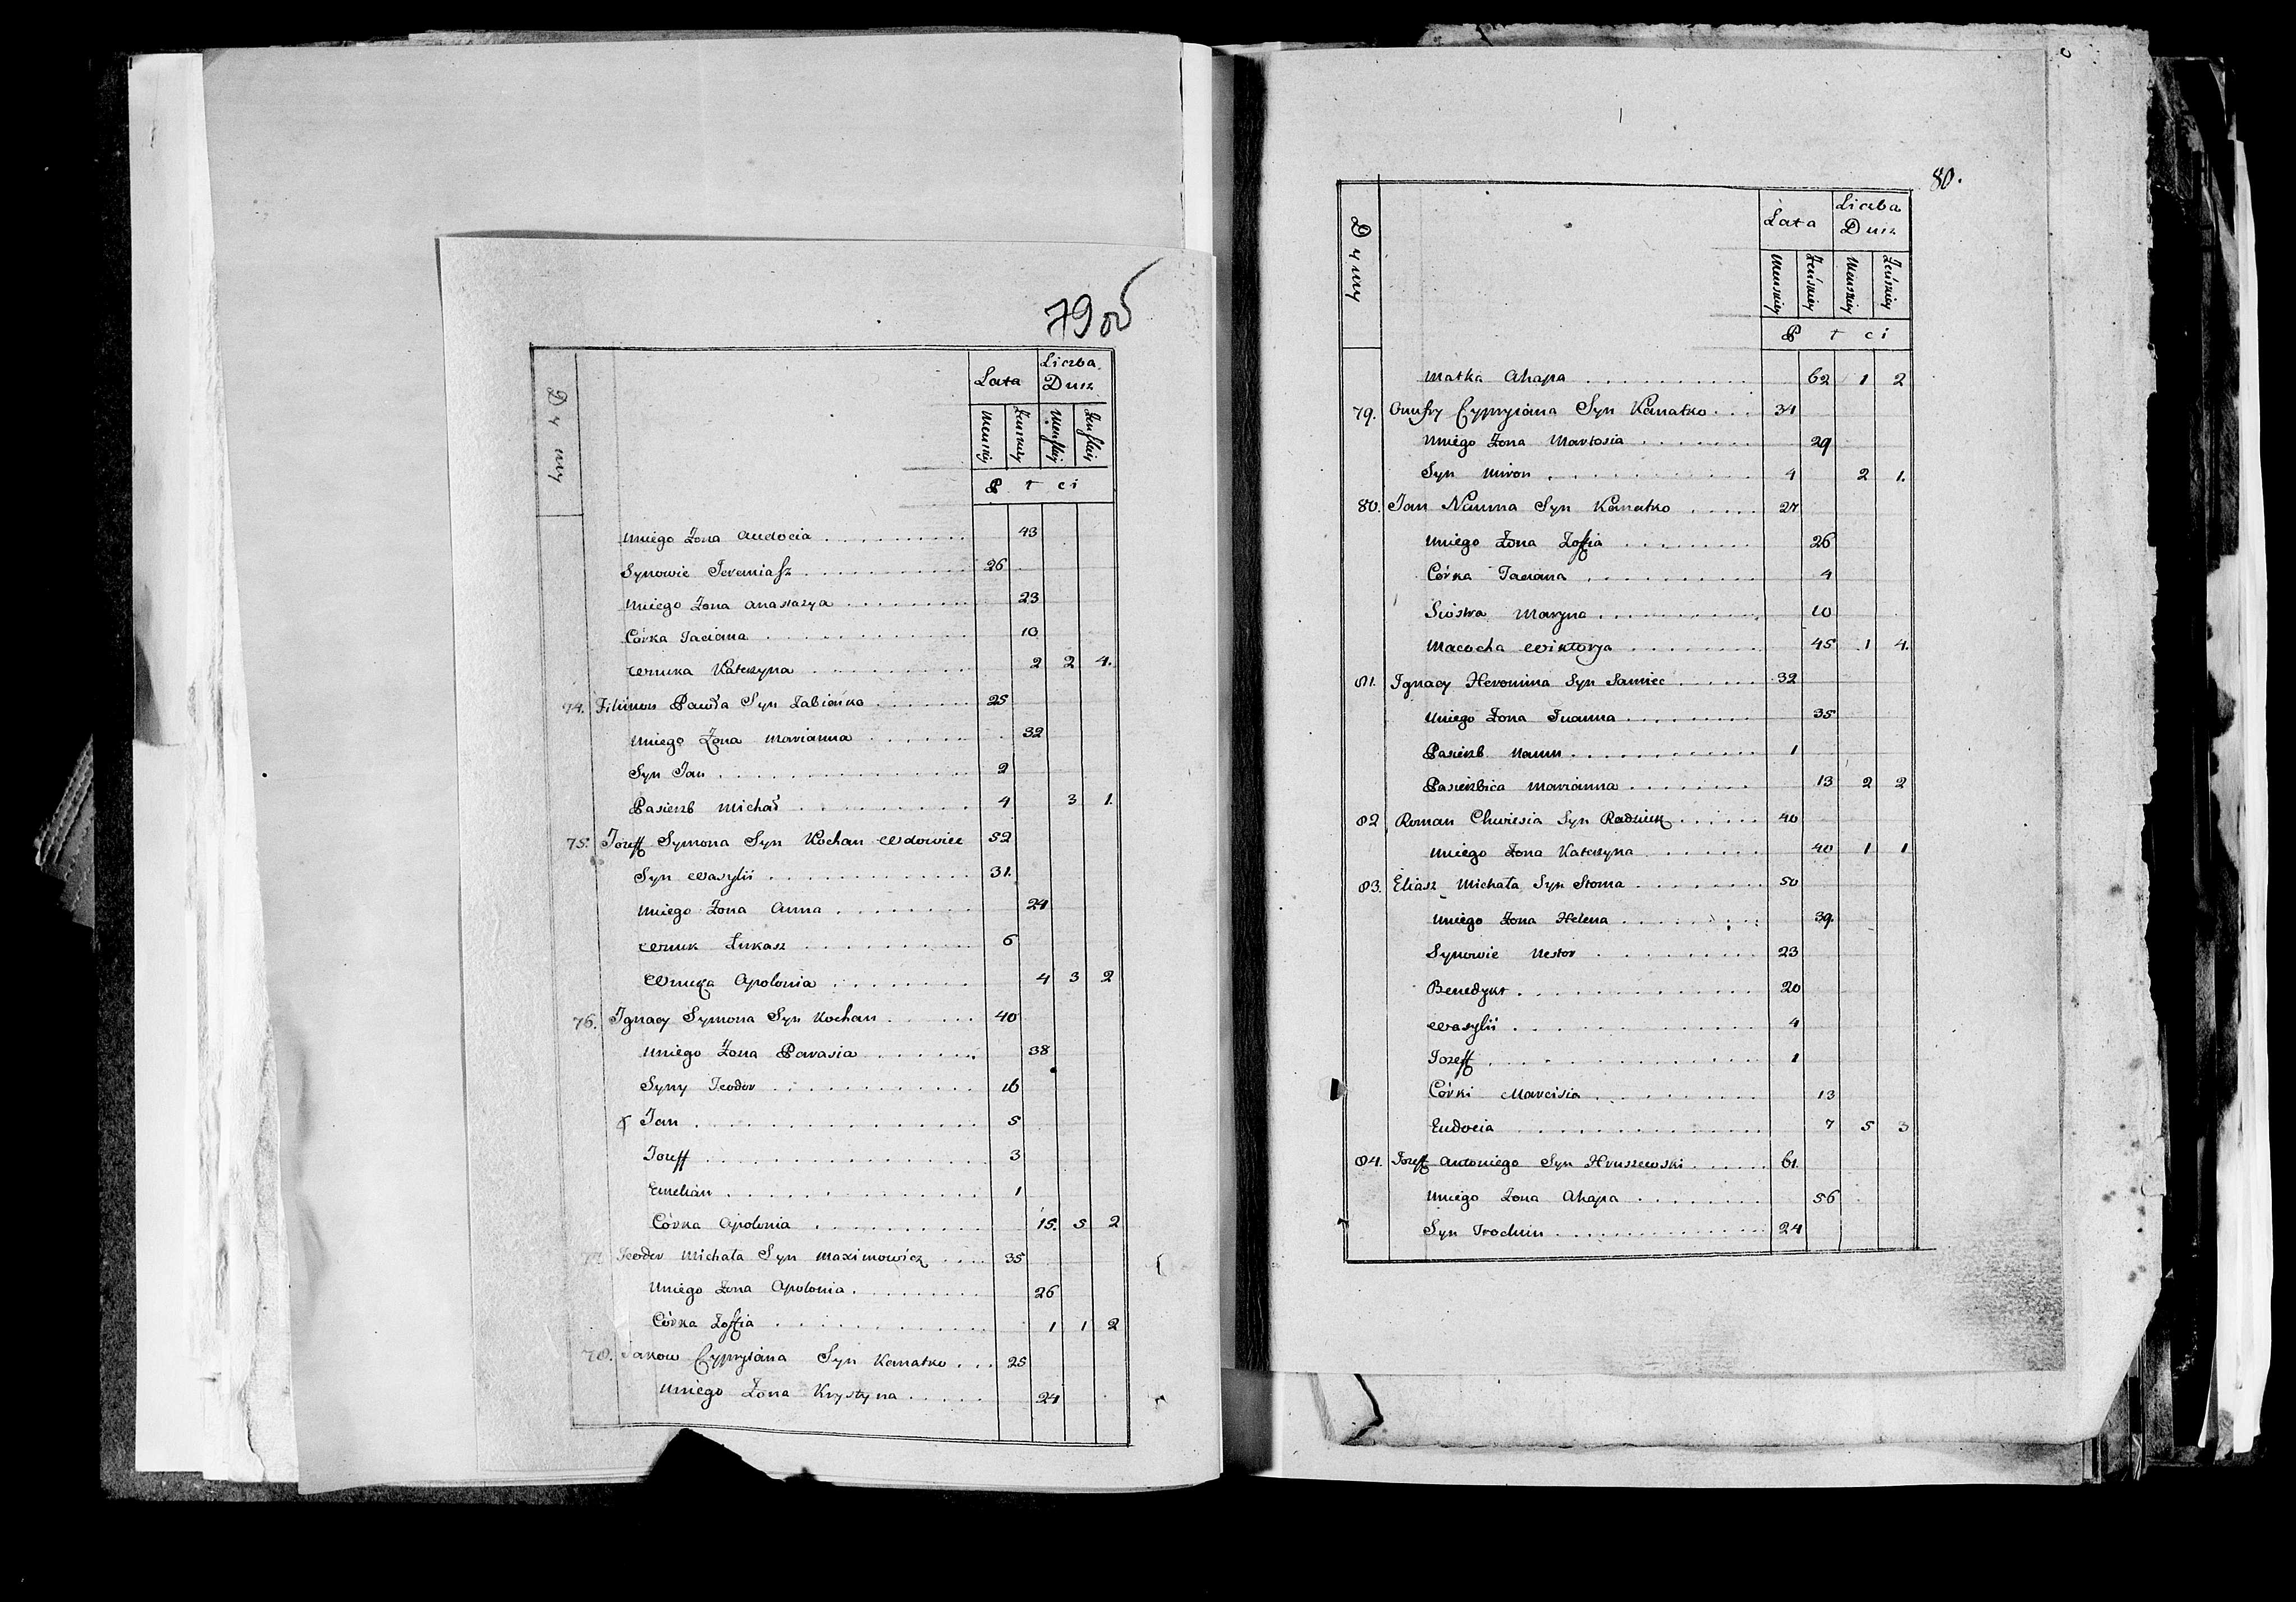 79 об
Dymy
Lata
Liczba Dusz
Menskiey
Zenskiey
Menskiey
Zenskiey
P t c i
Uniego Zona Audocia 43
Synowie Jeremiasz 26
Uniego Zona Anastazya 23
Córka Taciana 10
Wnuka Katerzyna 2 2 4.
74. Filimon Pawła Syn Labienka 25
Uniego Zona Marianna 32
Syn Jan 2
Pasierzb Michał 4 3 1.
75. Jozeff Symona Syn Kochan Wdowiec 52
Syn Wasylii 31.
Uniego Zona Anna 24
Wnuk Łukasz 6
Wnuka Apolonia 4 3 2
76. Ignacy Symona Syn Kochan 40
Uniego Zona Parasia 38
Syny Teodor 16
Jan 5
Jozeff 3
Emelian 1
Córka Apolonia 15. 5 2
77. Teodor Michała Syn Maximowicz 35
Uniego Zona Apolonia 26
Córka Zoffia 1 1 2
78. Jakow Cypryiana Syn Kanatko 25
Uniego Zona Krystyna 24
80.
Dymy
Lata
Liczba Dusz
Menskiey
Zeńskiey
Menskiey
Zeńskiey
P t c i
Matka Ahapa 62 1 2
79. Onufry Cypryiana Syn Kanatko 34
Uniego Zona Martosia 29
Syn Miron 4 2 1.
80. Jan Nauma Syn Kanatko 27
Uniego Zona Zoffia 26
Córka Taciana 4
Siostra Maryna 10
Macocha Wiktorya 45 1 4.
81. Ignacy Heronima Syn Samiec 32
Uniego Zona Juanna 35
Pasierzb Naum 1
Pasierzbica Marianna 13 2 2
82 Roman Chwiesia Syn Radziuk 40
Uniego Zona Katerzyna 40 1 1
83. Eliasz Michała Syn Stoma 50
Uniego Zona Helena 39.
Synowie Nestor 23
Benedykt 20
Wasylii 4
Jozeff 1
Córki Marcisia 13
Eudocia 7 5 3
84. Jozeff Antoniego Syn Hruszewski 61.
Uniego Zona Ahapa 56
Syn Trochim 24